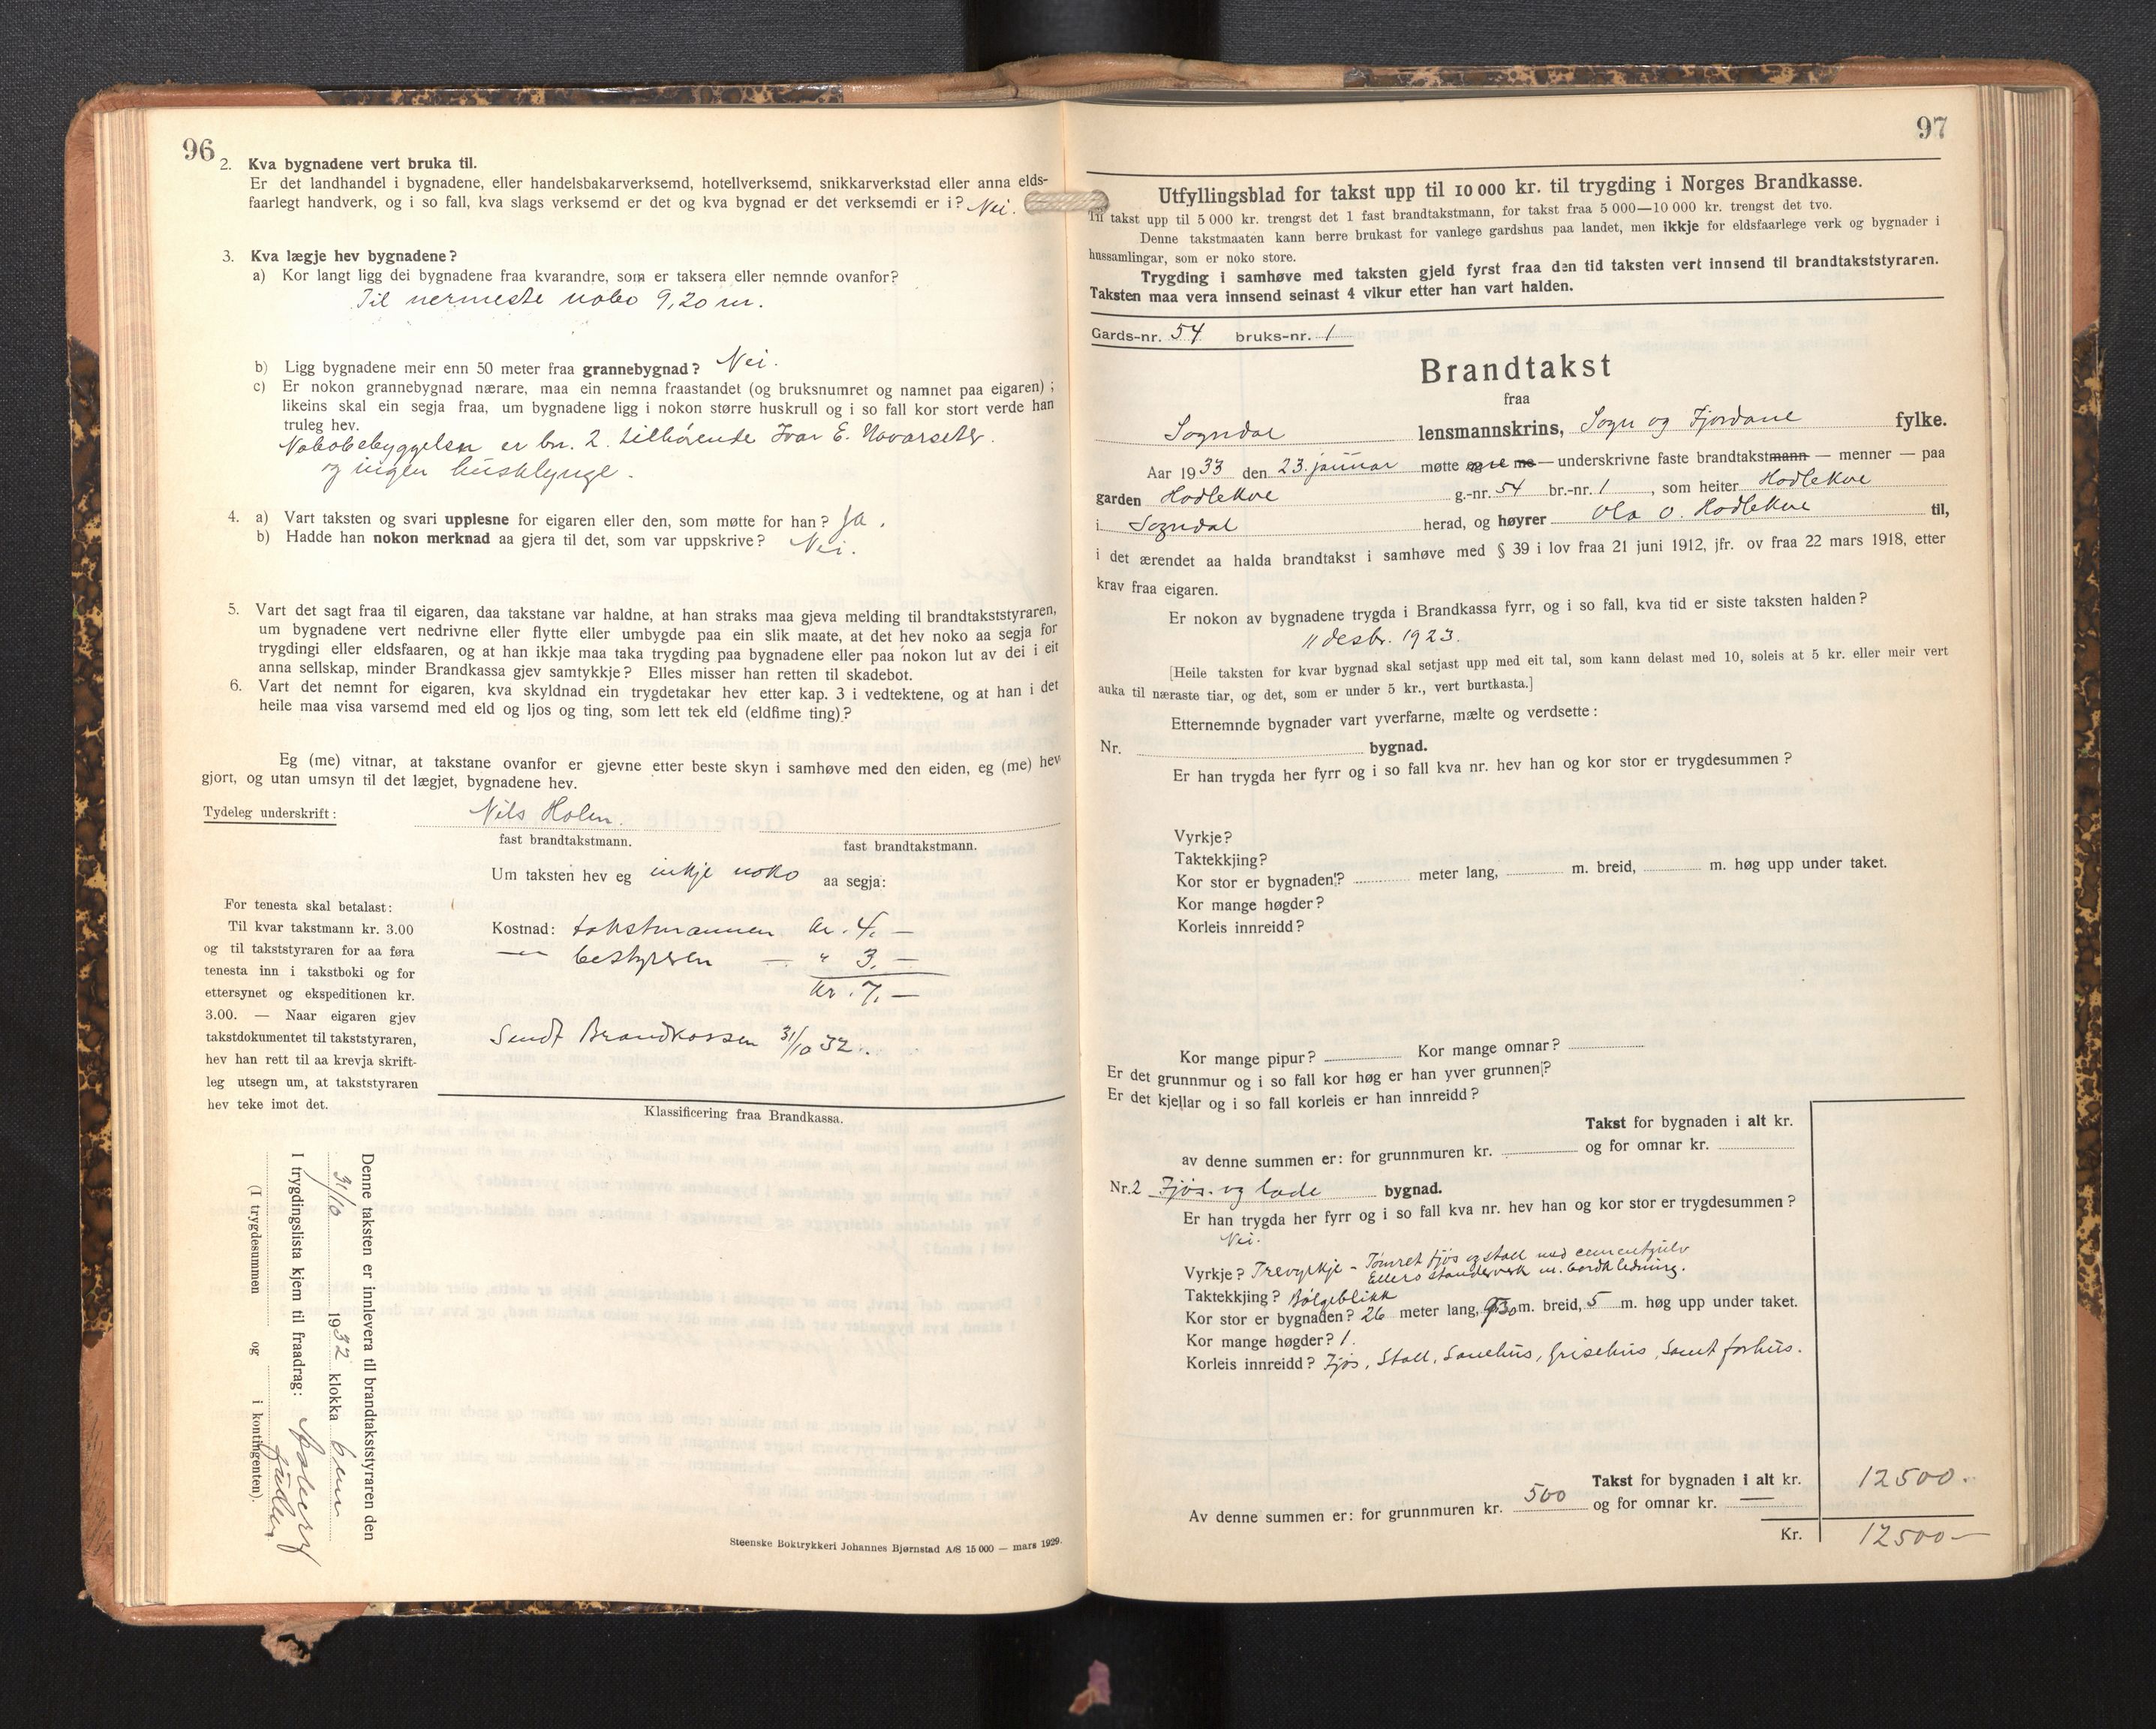 96
2. Kva bygnadene vert bruka til.
Er det landhandel i bygnadene, eller handelsbakarverksemd, hotellverksemd, snikkarverkstad eller anna elds-
faarlegt handverk, og i so fall, kva slags verksemd er det og kva bygnad er det verksemdi er i? Nei.
3. Kva lægje hev bygnadene?
a) Kor langt ligg dei bygnadene fraa kvarandre, som er taksera eller nemnde ovanfor?
Til nermeste nabo 9,20 m.
b) Ligg bygnadene meir enn 50 meter fraa grannebygnad? Nei.
c) Er nokon grannebygnad nærare, maa ein nemna fraastandet (og bruksnumret og namnet paa eigaren);
likeins skal ein segja fraa, um bygnadene ligg i nokon større huskrull og i so fall kor stort verde han
truleg hev.
Nabobebyggelsen er bn. 2. tilhørende Ivar E. Navarseter.
og ingen husklynge.
4. a) Vart taksten og svari upplesne for eigaren eller den, som møtte for han? Ja.
b) Hadde han nokon merknad aa gjera til det, som var uppskrive? Nei.
5. Vart det sagt fraa til eigaren, daa takstane var haldne, at han straks maa gjeva melding til brandtakststyraren,
um bygnadene vert nedrivne eller flytte eller umbygde paa ein slik maate, at det hev noko aa segja for
trygdingi eller eldsfaaren, og at han ikkje maa taka trygding paa bygnadene eller paa nokon lut av dei i eit
anna sellskap, minder Brandkassa gjev samtykkje? Elles misser han retten til skadebot.
6. Vart det nemnt for eigaren, kva skyldnad ein trygdetakar hev etter kap. 3 i vedtektene, og at han i det
heile maa visa varsemd med eld og ljos og ting, som lett tek eld (eldfime ting)?
Eg (me) vitnar, at takstane ovanfor er gjevne etter beste skyn i samhøve med den eiden, eg (me) hev
gjort, og utan umsyn til det lægjet, bygnadene hev.
Tydeleg underskrift: Nils Holen.
fast brandtakstmann. fast brandtakstmann.
Um taksten hev eg inkje noko aa segja:
For tenesta skal betalast:
Til kvar takstmann kr. 3.00
og til takststyraren for aa føra
tenesta inn i takstboki og for
ettersynet og ekspeditionen kr.
3.00. — Naar eigaren gjev
takstdokumentet til takststyraren,
hev han rett til aa krevja skrift-
leg utsegn um, at takststyraren
hev teke imot det.
Kostnad: takstmannen kr. 4.—
— bestyreren — " 3.—
kr. 7.—
Sendt Brandkassen 31/10 32.
Klassificering fraa Brandkassa.
Denne taksten er innlevera til brandtakststyraren den
31/10 1932 klokka 6 em
I trygdingslista kjem til fraadrag:
(I trygdesummen og i kontingenten).
Steenske Boktrykkeri Johannes Bjørnstad A/S 15 000 — mars 1929.
97
Utfyllingsblad for takst upp til 10 000 kr. til trygding i Norges Brandkasse.
Til takst upp til 5 000 kr. trengst det 1 fast brandtakstmann, for takst fraa 5 000—10 000 kr. trengst det tvo.
Denne takstmaaten kann berre brukast for vanlege gardshus paa landet, men ikkje for eldsfaarlege verk og bygnader i
hussamlingar, som er noko store.
Trygding i samhøve med taksten gjeld fyrst fraa den tid taksten vert innsend til brandtakststyraren.
Taksten maa vera innsend seinast 4 vikur etter han vart halden.
Gards-nr. 54 bruks-nr. 1
Brandtakst
fraa
Sogndal lensmannskrins, Sogn og Fjordane fylke.
Aar 1933 den 23. januar møtte me — underskrivne faste brandtakstmann — menner — paa
garden Hodlekve g.-nr. 54 br.-nr. 1, som heiter Hodlekve
i Sogndal herad, og høyrer Ola O. Hodlekve til,
i det ærendet aa halda brandtakst i samhøve med § 39 i lov fraa 21 juni 1912, jfr. ov fraa 22 mars 1918, etter
krav fraa eigaren.
Er nokon av bygnadene trygda i Brandkassa fyrr, og i so fall, kva tid er siste taksten halden?
11 desbr. 1923.
[Heile taksten for kvar bygnad skal setjast upp med eit tal, som kann delast med 10, soleis at 5 kr. eller meir vert
auka til næraste tiar, og det, som er under 5 kr., vert burtkasta.]
Etternemnde bygnader vart yverfarne, mælte og verdsette:
Nr. bygnad.
Er han trygda her fyrr og i so fall kva nr. hev han og kor stor er trygdesummen?
Vyrkje?
Taktekkjing?
Kor stor er bygnaden? meter lang, m. breid, m. høg upp under taket.
Kor mange høgder?
Korleis innreidd?
Kor mange pipur? Kor mange omnar?
Er det grunnmur og i so fall kor høg er han yver grunnen?
Er det kjellar og i so fall korleis er han innreidd?
Takst for bygnaden i alt kr.
av denne summen er: for grunnmuren kr. og for omnar kr.
Nr. 2 Fjøs og lade bygnad.
Er han trygda her fyrr og i so fall kva nr. hev han og kor stor er trygdesummen?
Nei.
Vyrkje? Trevyrkje – Tømret fjøs og stall med cementgulv
Ellers standerverk m. bordkledning.
Taktekkjing? Bølgeblikk
Kor stor er bygnaden? 26 meter lang, m. breid, 5 m. høg upp under taket.
Kor mange høgder? 1.
Korleis innreidd? Fjøs, Stall, Sauehus, Grisehus, Samt forhus.
Takst for bygnaden i alt kr. 12500.
Av denne summen er: for grunnmuren kr. 500 og for omnar kr. —
Kr. 12500—